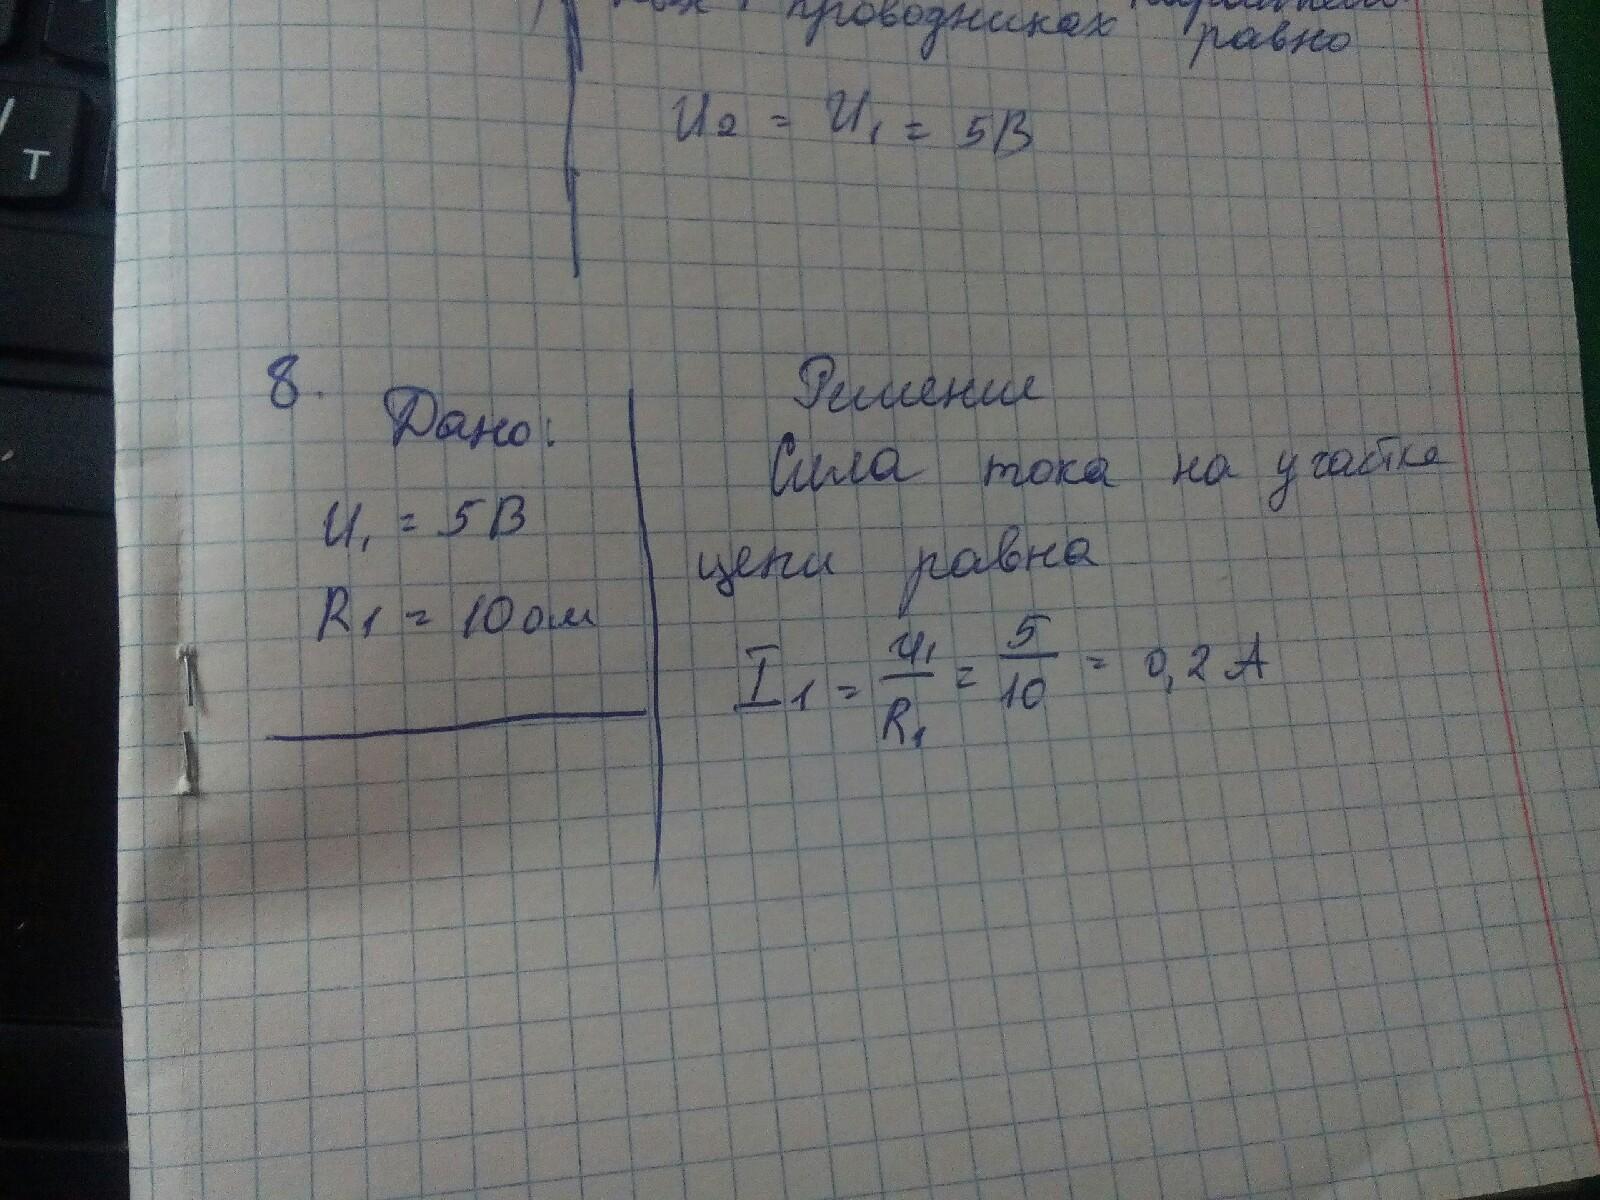 проводниках равно
U2 = U1 = 5В
/
т
8.
Дано:
U1 = 5В
R1 = 10 ом
Решение
Сила тока на участке
цепи равна
I1 = U1/R1 = 5/10 = 0,2 А